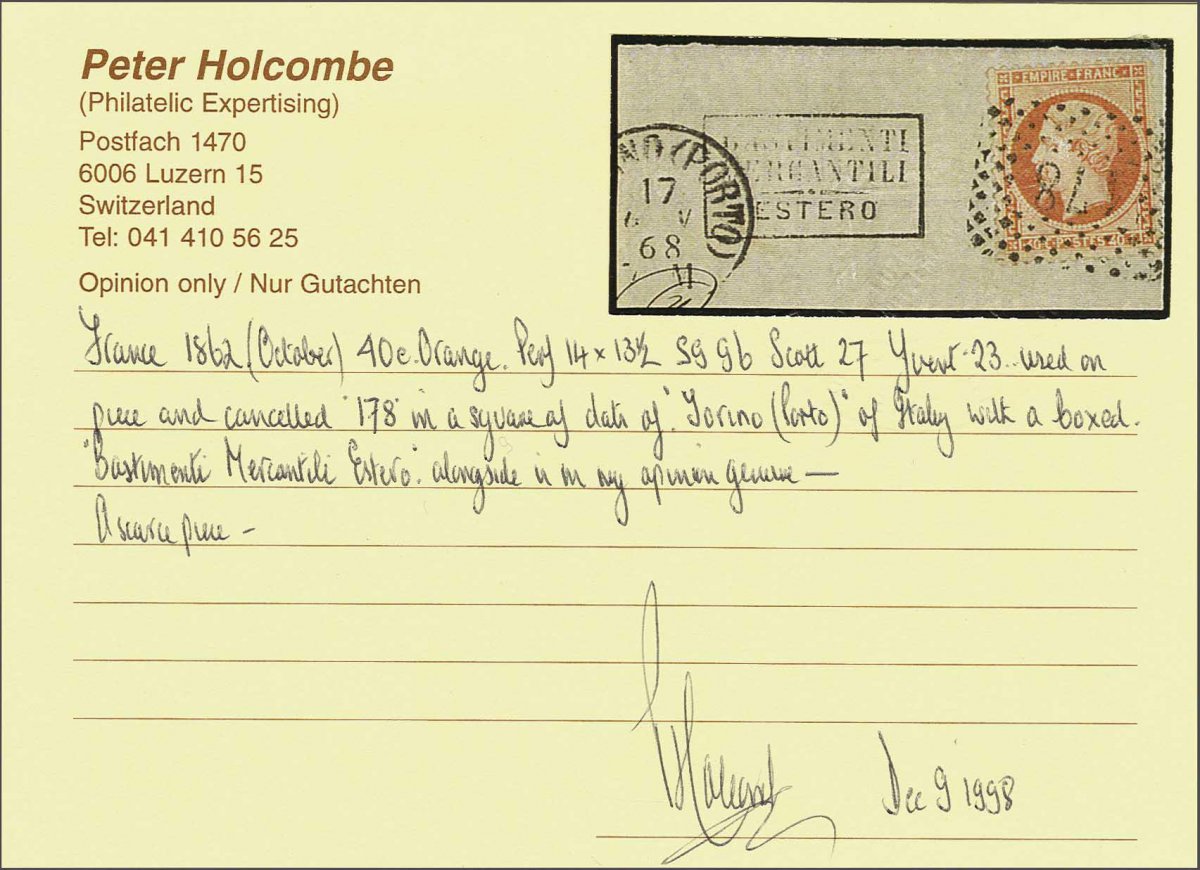 Peter Holcombe
(Philatelic Expertising)
Postfach 1470
6006 Luzern 15
Switzerland
Tel: 041 410 56 25
Opinion only / Nur Gutachten
NO (PORTO)
17
68
M
BASTIMENTI
MERCANTILI
ESTERO
EMPIRE FRANC
178
40 C POSTES 40 C
France 1862 (October) 40c. Orange. Perf 14 x 13½ SG 96 Scott 27 Yvert 23.. used on
piece and cancelled "178" in a square of dots of "Torino (Porto)" of Italy with a boxed.
"Bastimenti Mercantili Estero". alongside is in my opinion genuine —
A scarce piece —
Dec 9 1998